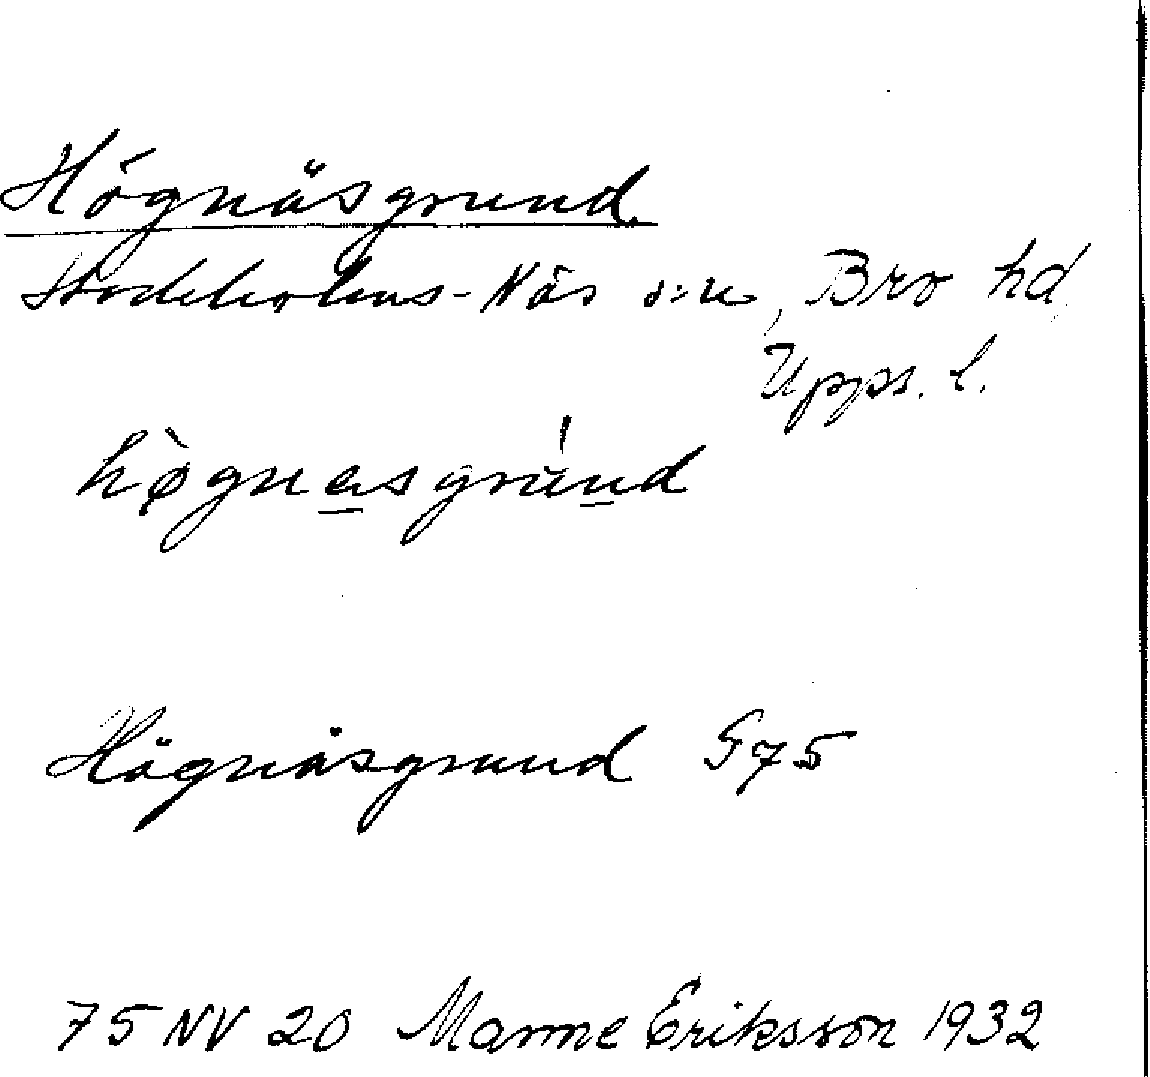 Högnäsgrund
Stockholms-Näs s:n, Bro hd,
Upps. l.
hògnasgrúnd
Högnäsgrund G75
75 NV 20 Manne Eriksson 1932